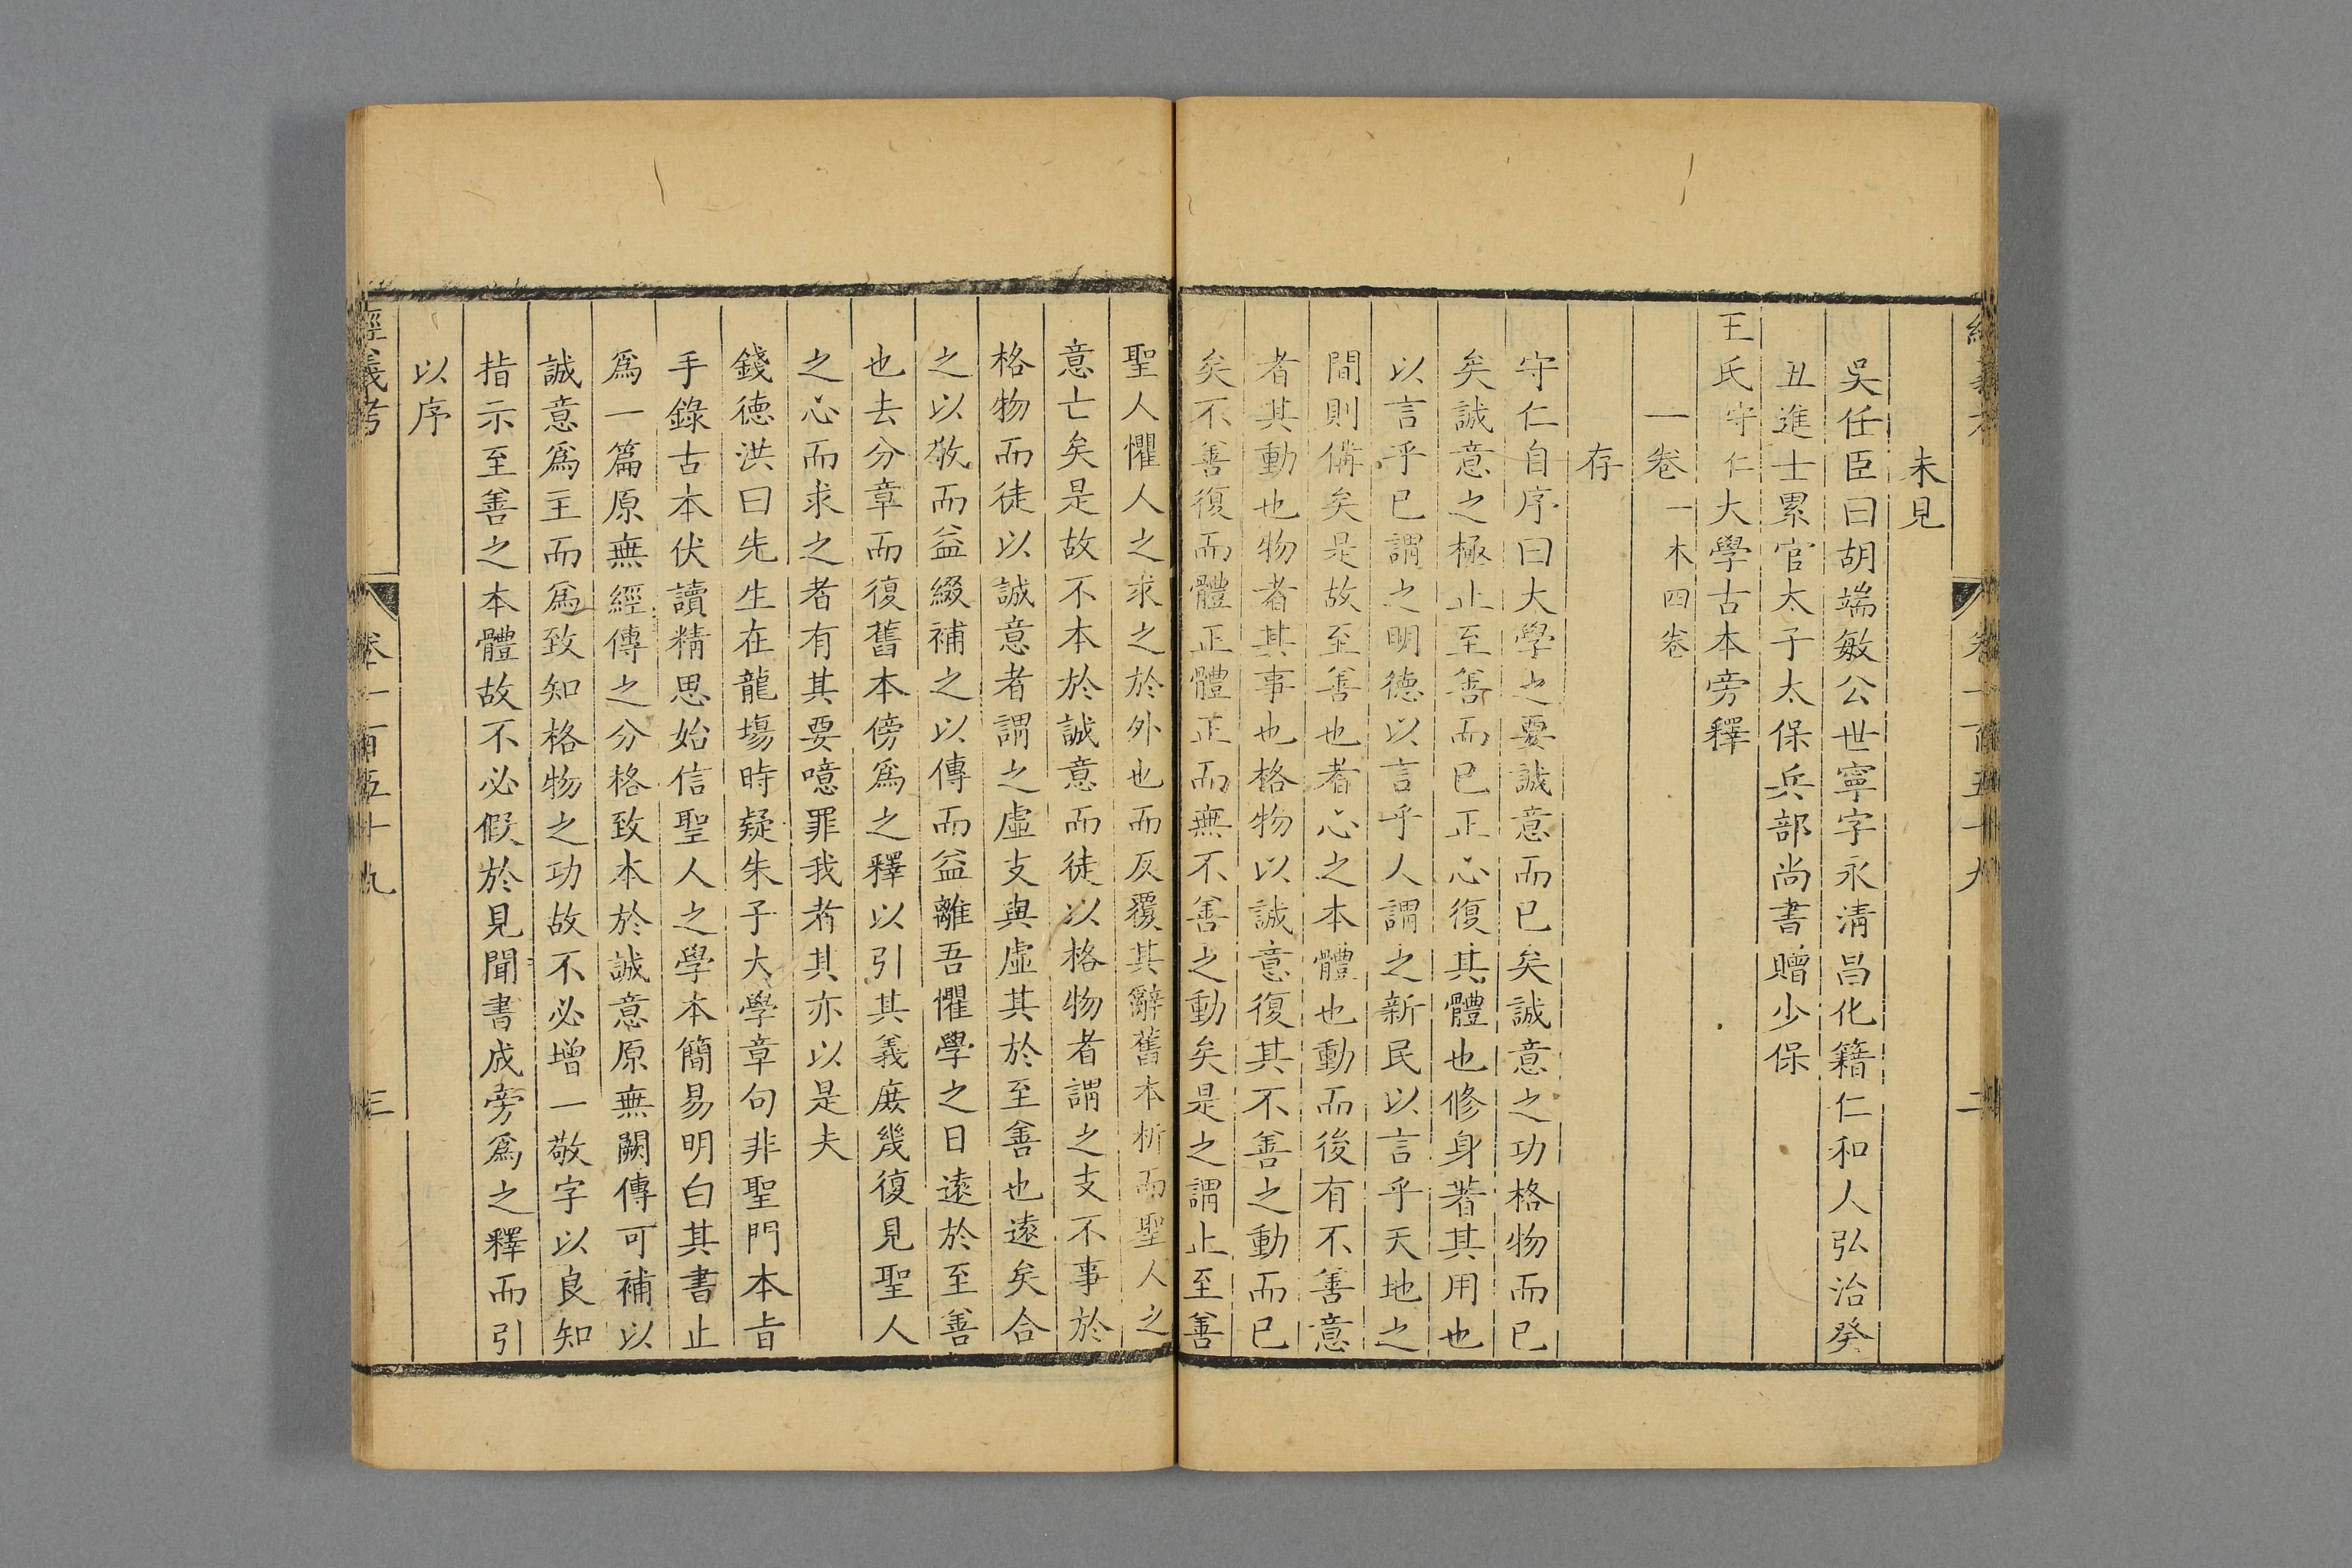 經義考 卷一百五十九 二
未見
吳任臣曰胡端敏公世寧字永淸昌化籍仁和人弘治癸
丑進士累官太子太保兵部尚書贈少保
王氏守仁大學古本旁釋
一卷一本四卷
存
守仁自序曰大學之要誠意而已矣誠意之功格物而已
矣誠意之極止至善而已正心復其體也修身著其用也
以言乎已謂之明德以言乎人謂之新民以言乎天地之
間則備矣是故至善也者心之本體也動而後有不善意
者其動也物者其事也格物以誠意復其不善之動而已
矣不善復而體正體正而無不善之動矣是之謂止至善
聖人懼人之求之於外也而反覆其辭舊本析而聖人之
意亡矣是故不本於誠意而徒以格物者謂之支不事於
格物而徒以誠意者謂之虛支與虛其於至善也遠矣合
之以敬而益綴補之以傳而益離吾懼學之日遠於至善
也去分章而復舊本傍爲之釋以引其義庻幾復見聖人
之心而求之者有其要噫罪我者其亦以是夫
錢德洪曰先生在龍塲時疑朱子大學章句非聖門本旨
手錄古本伏讀精思始信聖人之學本簡易明白其書止
爲一篇原無經傳之分格致本於誠意原無闕傳可補以
誠意爲主而爲致知格物之功故不必增一敬字以良知
指示至善之本體故不必假於見聞書成旁爲之釋而引
以序
經義考 卷一百五十九 三